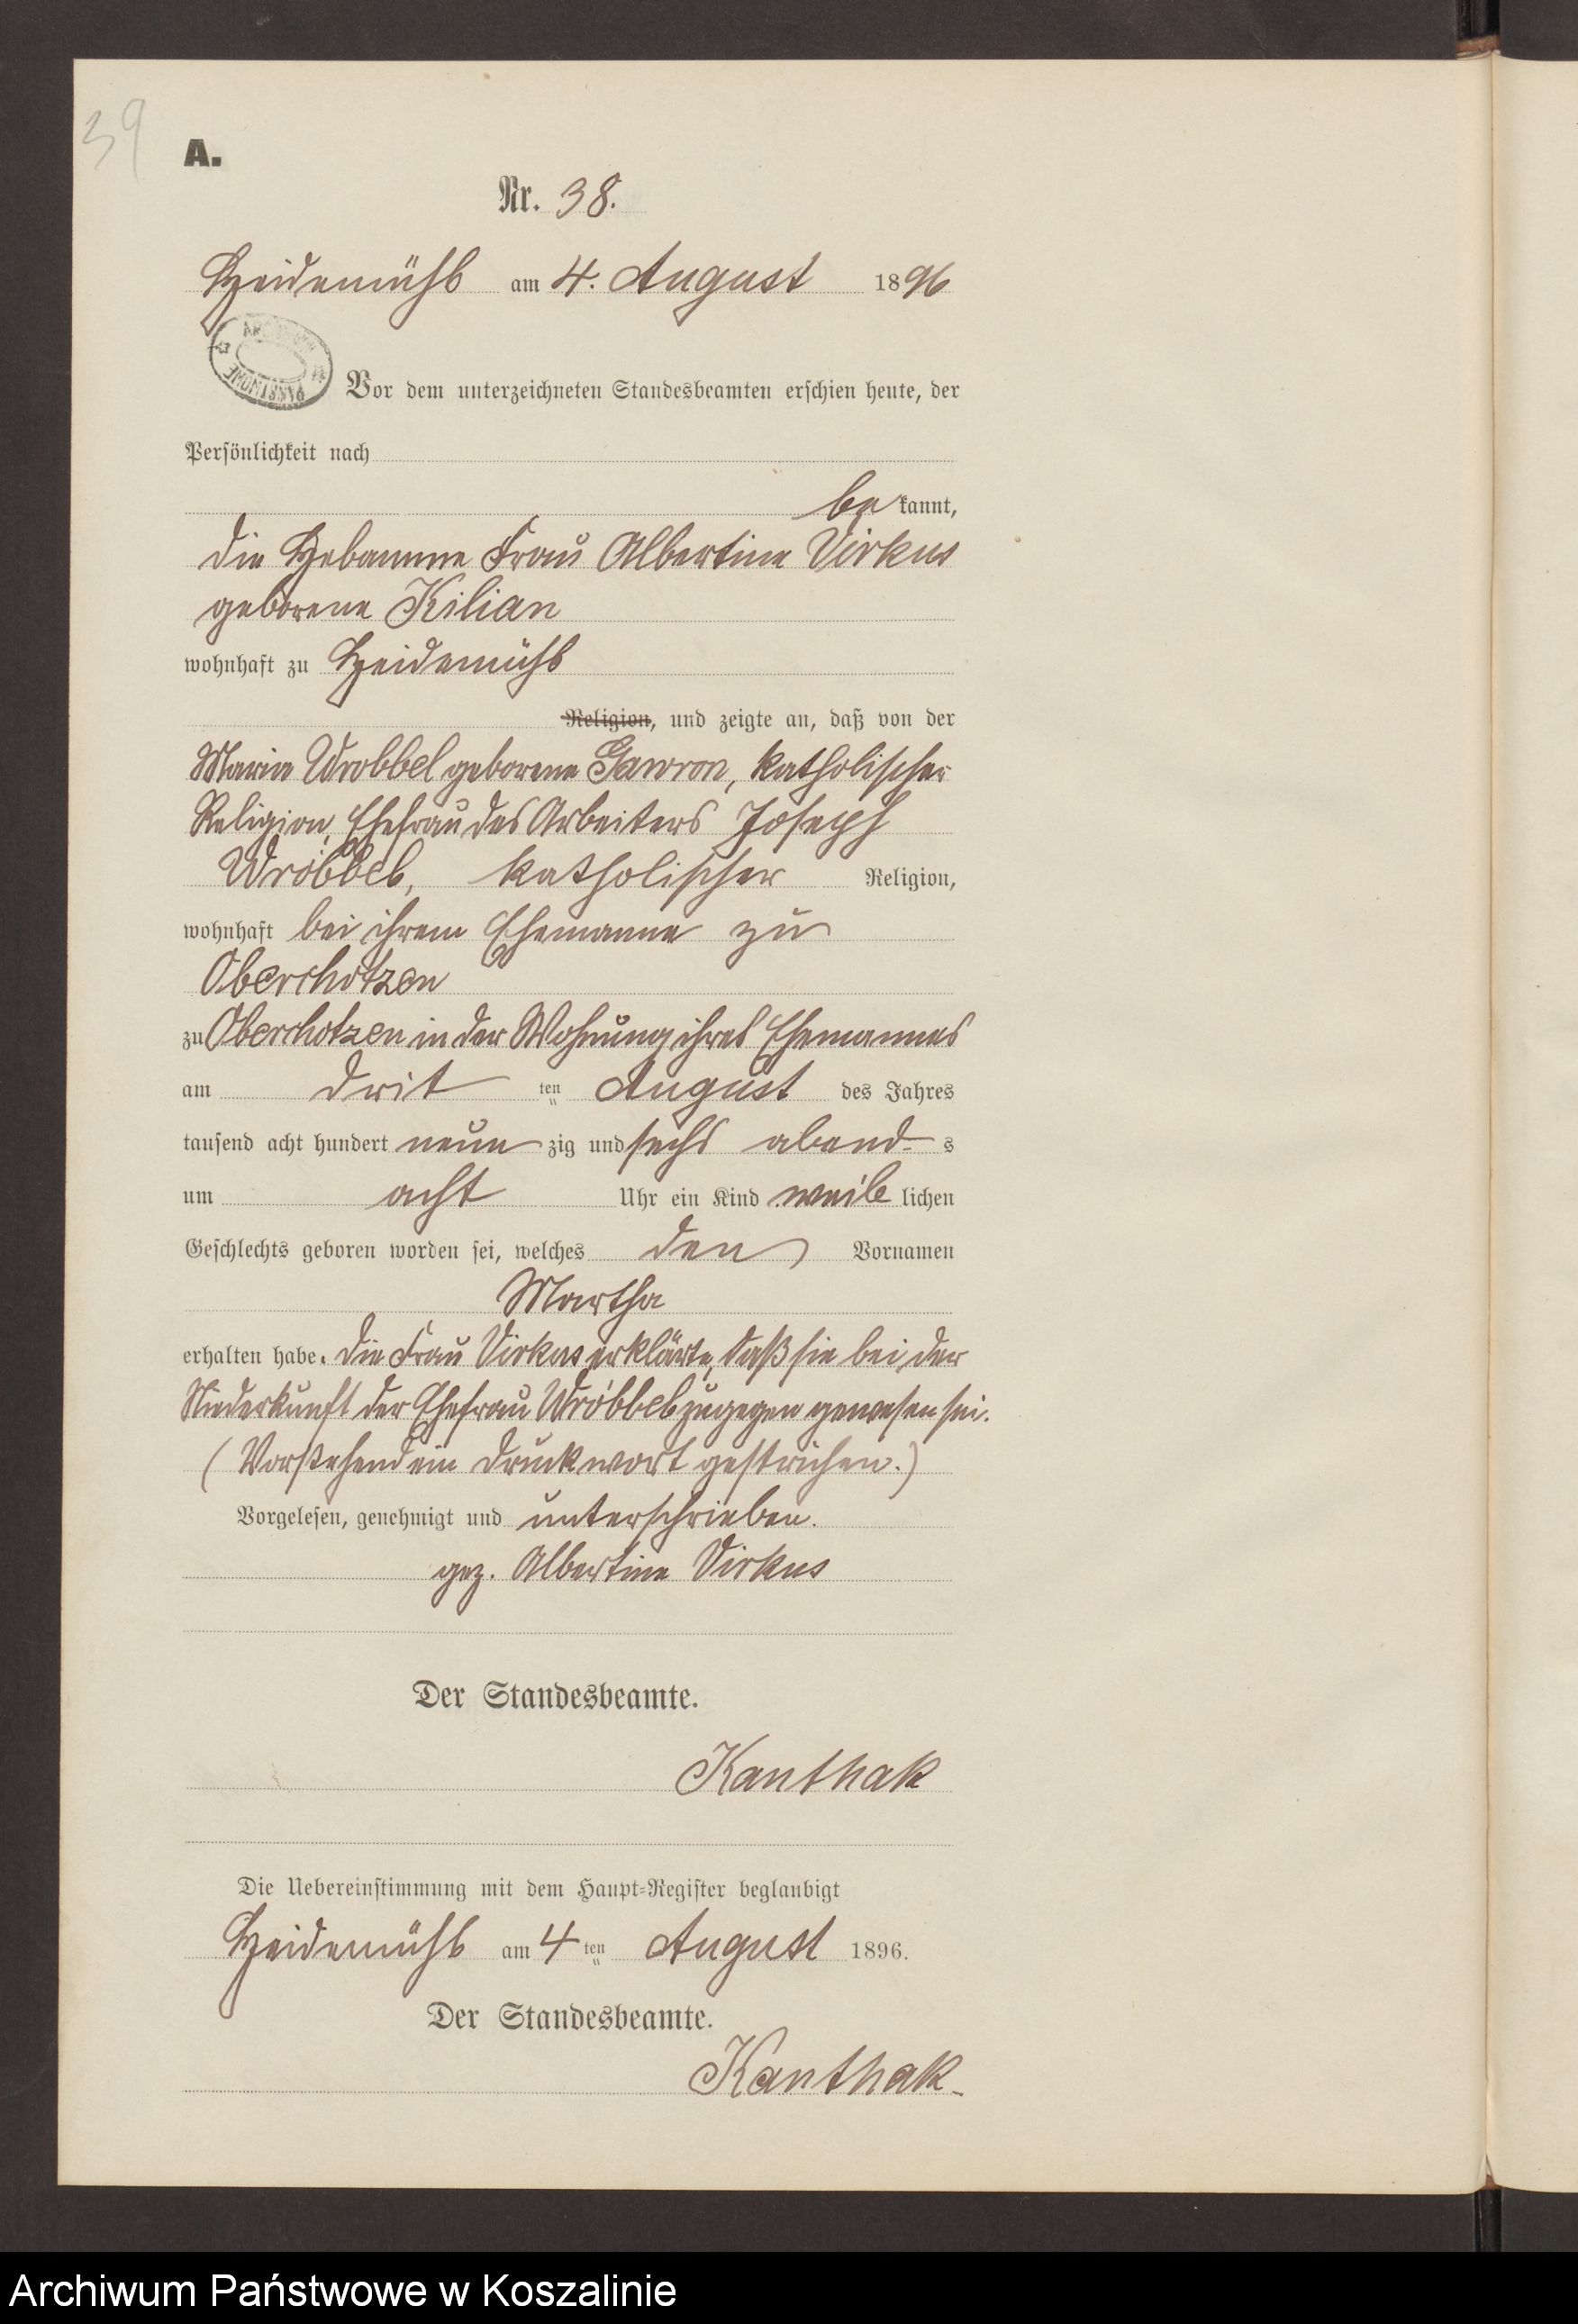 39
A.
Nr. 38.
Heidemühl am 4. August 1896
Vor dem unterzeichneten Standesbeamten erschien heute, der
Persönlichkeit nach
be kannt,
die Hebamme Frau Albertine Virkus
geborene Kilian
wohnhaft zu Heidemühl
Religion, und zeigte an, daß von der
Maria Wrobbel geborene Gawron, katholischer
Religion, Ehefrau des Arbeiters Joseph
Wróbbel, katholischer Religion,
wohnhaft bei ihrem Ehemanne zu
Oberchotzen
zu Oberchotzen in der Wohnung ihres Ehemannes
am drit ten August des Jahres
tausend acht hundert neun zig und sechs abend s
um acht Uhr ein Kind weib lichen
Geschlechts geboren worden sei, welches den Vornamen
Martha
erhalten habe. Die Frau Virkus erklärte, daß sie bei der
Niederkunft der Ehefrau Wróbbel zugegen gewesen sei.
(Vorstehend ein Druckwort gestrichen.)
Vorgelesen, genehmigt und unterschrieben.
gez. Albertine Virkus
Der Standesbeamte.
Kanthak
Die Uebereinstimmung mit dem Haupt-Register beglaubigt
Heidemühl am 4 ten August 1896.
Der Standesbeamte.
Kanthak.
Archiwum Państwowe w Koszalinie